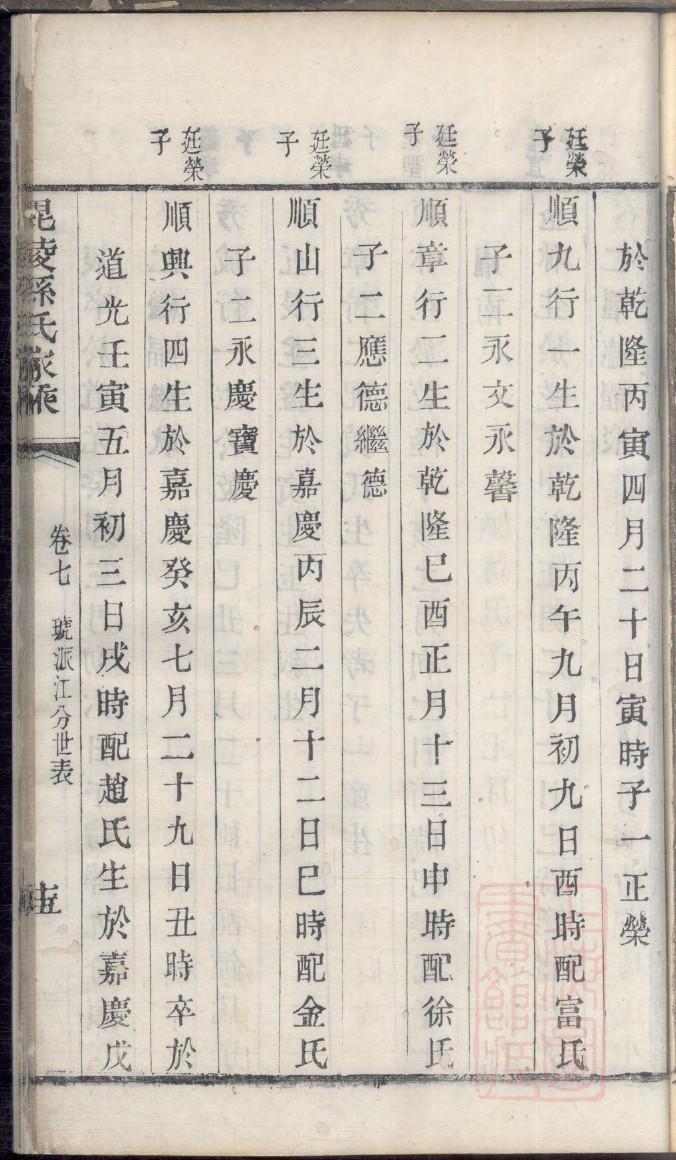 於乾隆丙寅四月二十日寅時子一正榮
廷榮子
順九行一生於乾隆丙午九月初九日酉時配富氏
子二永文永馨
廷榮子
順章行二生於乾隆巳酉正月十三日申時配徐氏
子二應德繼德
廷榮子
順山行三生於嘉慶丙辰二月十二日巳時配金氏
子二永慶寶慶
廷榮子
順興行四生於嘉慶癸亥七月二十九日丑時卒於
道光壬寅五月初三日戌時配趙氏生於嘉慶戊
毘陵孫氏家乘
卷七 琥派江分世表